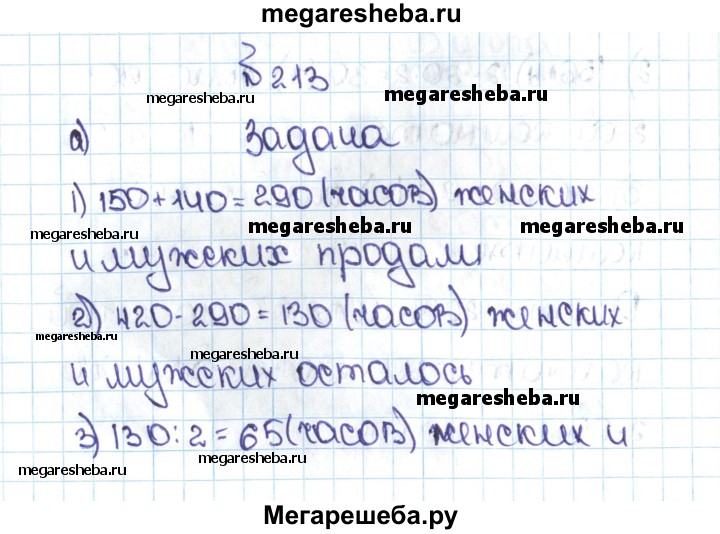 megaresheba.ru
№ 213
megaresheba.ru megaresheba.ru
а) Задача
1) 150+140=290 (часов) женских
megaresheba.ru megaresheba.ru megaresheba.ru
и мужских продали
2) 420-290=130 (часов) женских
megaresheba.ru megaresheba.ru
и мужских осталось
megaresheba.ru
3) 130:2=65 (часов) женских и
megaresheba.ru megaresheba.ru
Мегарешеба.ру